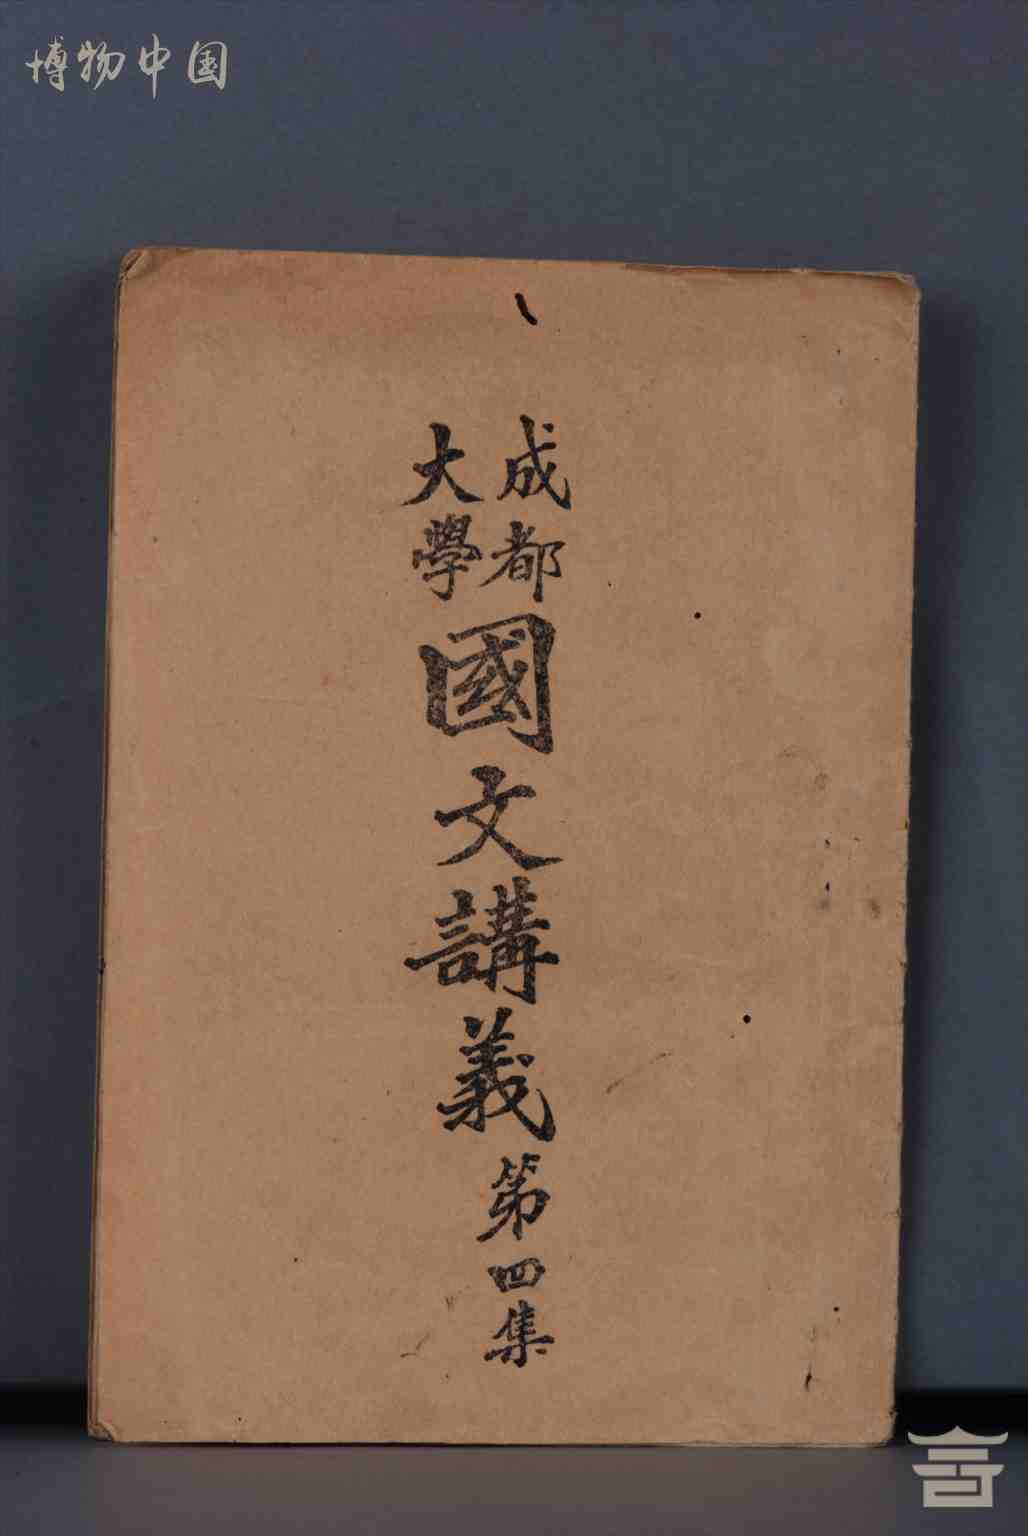 博物中国
成都
大學
國文講義第四集